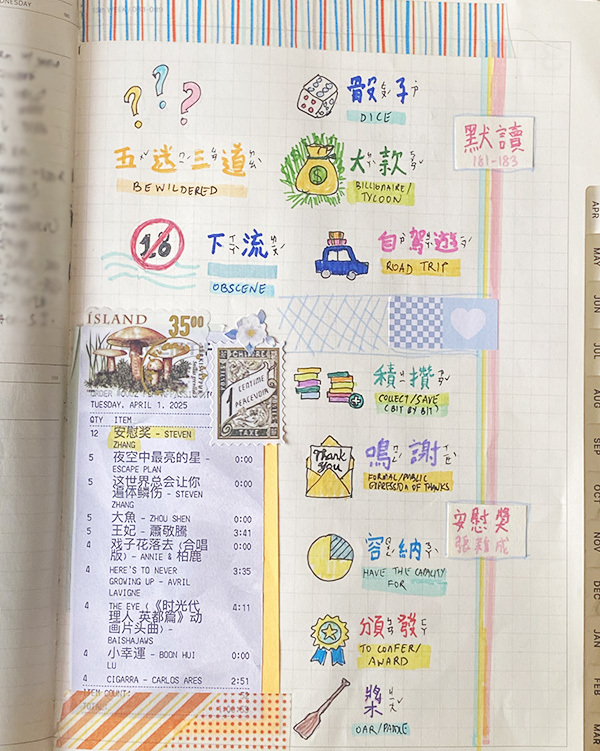 DNESDAY
? ? ?
五迷三道
BEWILDERED
18
下流
OBSCENE
骰子
DICE
$
大款
BILLIONAIRE/
TYCOON
自駕遊
ROAD TRIP
默讀
181-183
ÍSLAND
3500
1
CENTIME
À PERCEVOIR
TAXE
TUESDAY, APRIL 1, 2025
QTY ITEM
12 安慰奖 - STEVEN
ZHANG
5 夜空中最亮的星 - 0:00
ESCAPE PLAN
5 这世界总会让你 0:00
遍体鳞伤 - STEVEN
ZHANG
5 大魚 - ZHOU SHEN 0:00
5 王妃 - 蕭敬騰 3:41
4 戏子花落去 (合唱 0:00
版) - ANNIE & 柏鹿
4 HERE'S TO NEVER 3:35
GROWING UP - AVRIL
LAVIGNE
4 THE EYE (《时光代 4:11
理人 英都篇》动
画片头曲) -
BAISHAJAWS
4 小幸運 - BOON HUI 0:00
LU
4 CIGARRA - CARLOS ARES 2:51
ITEM COUNT:
積攢
COLLECT/SAVE
(BIT BY BIT)
Thank
you
鳴謝
FORMAL/PUBLIC
EXPRESSION OF THANKS
容納
HAVE THE CAPACITY
FOR
頒發
TO CONFER/
AWARD
槳
OAR/PADDLE
安慰獎
張蚌成
APR
MAY
JUN
JUL
AUG
SEP
OCT
NOV
DEC
JAN
FEB
MAR